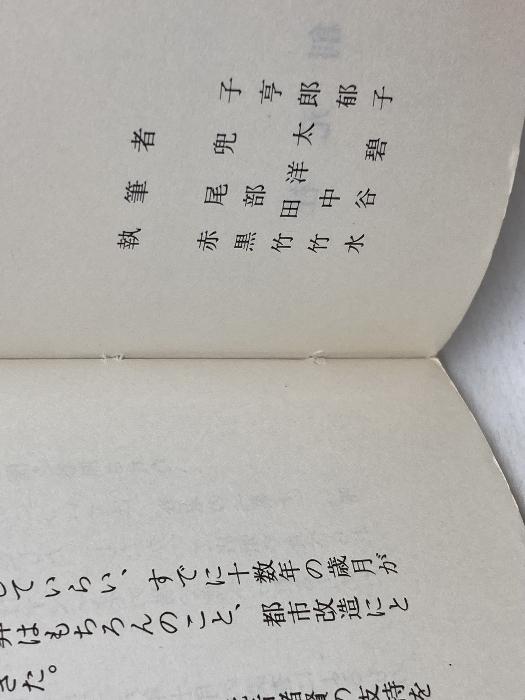 執筆者
赤尾兜子
黒部亨
竹田洋太郎
竹中郁
水谷碧子
ていらい、すでに十数年の歳月が
はもちろんのこと、都市改造にと
きた。
の支持を